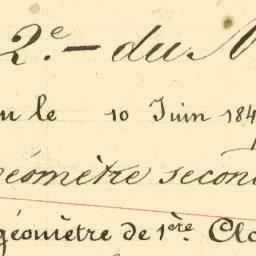 2e. - du
le 10 Juin 184
géomètre second
géomètre de 1ère. Cl